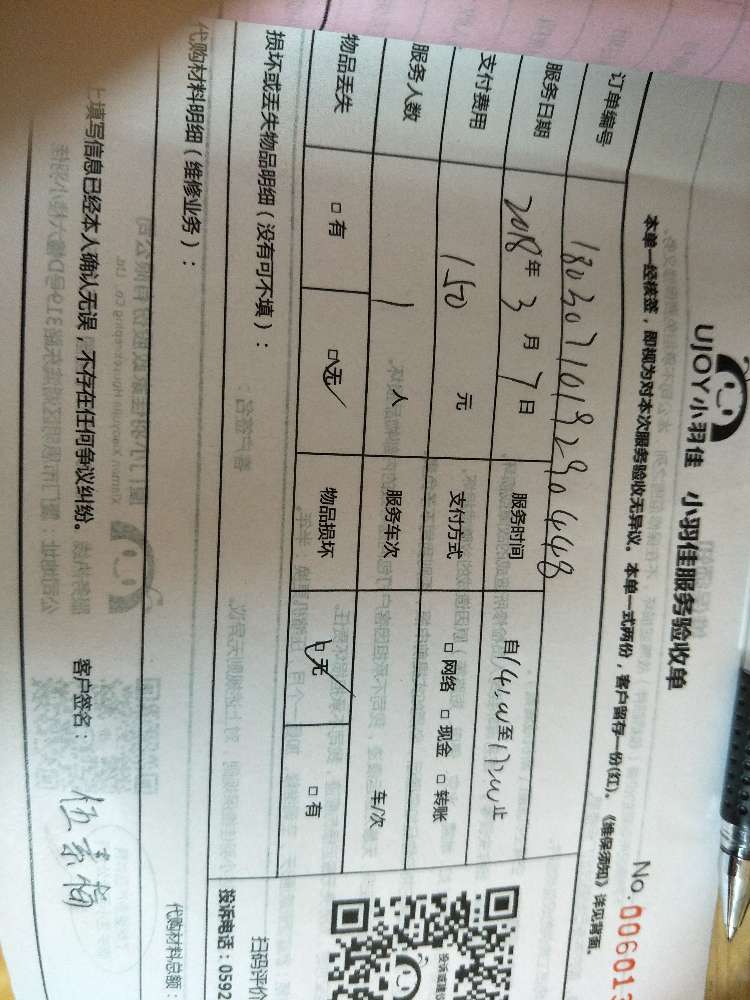 UJOY小羽佳 小羽佳服务验收单
No.
本单一经核签，即视为对本次服务验收无异议。本单一式两份，客户留存一份(红)。《维保须知》详见背面。
订单编号 1803071019290448
服务日期 2018年3月7日 服务时间 自14:00至17:00止
支付费用 150元 支付方式 □网络 □现金 □转账
服务人数 1人 服务车次 车/次
物品丢失 □有 □无✓ 物品损坏 □无✓ □有
损坏或丢失物品明细（没有可不填）：
扫码评价
投诉电话：0592
代购材料明细（维修业务）：
代购材料总额：
上填写信息已经本人确认无误，不存在任何争议纠纷。 客户签名：